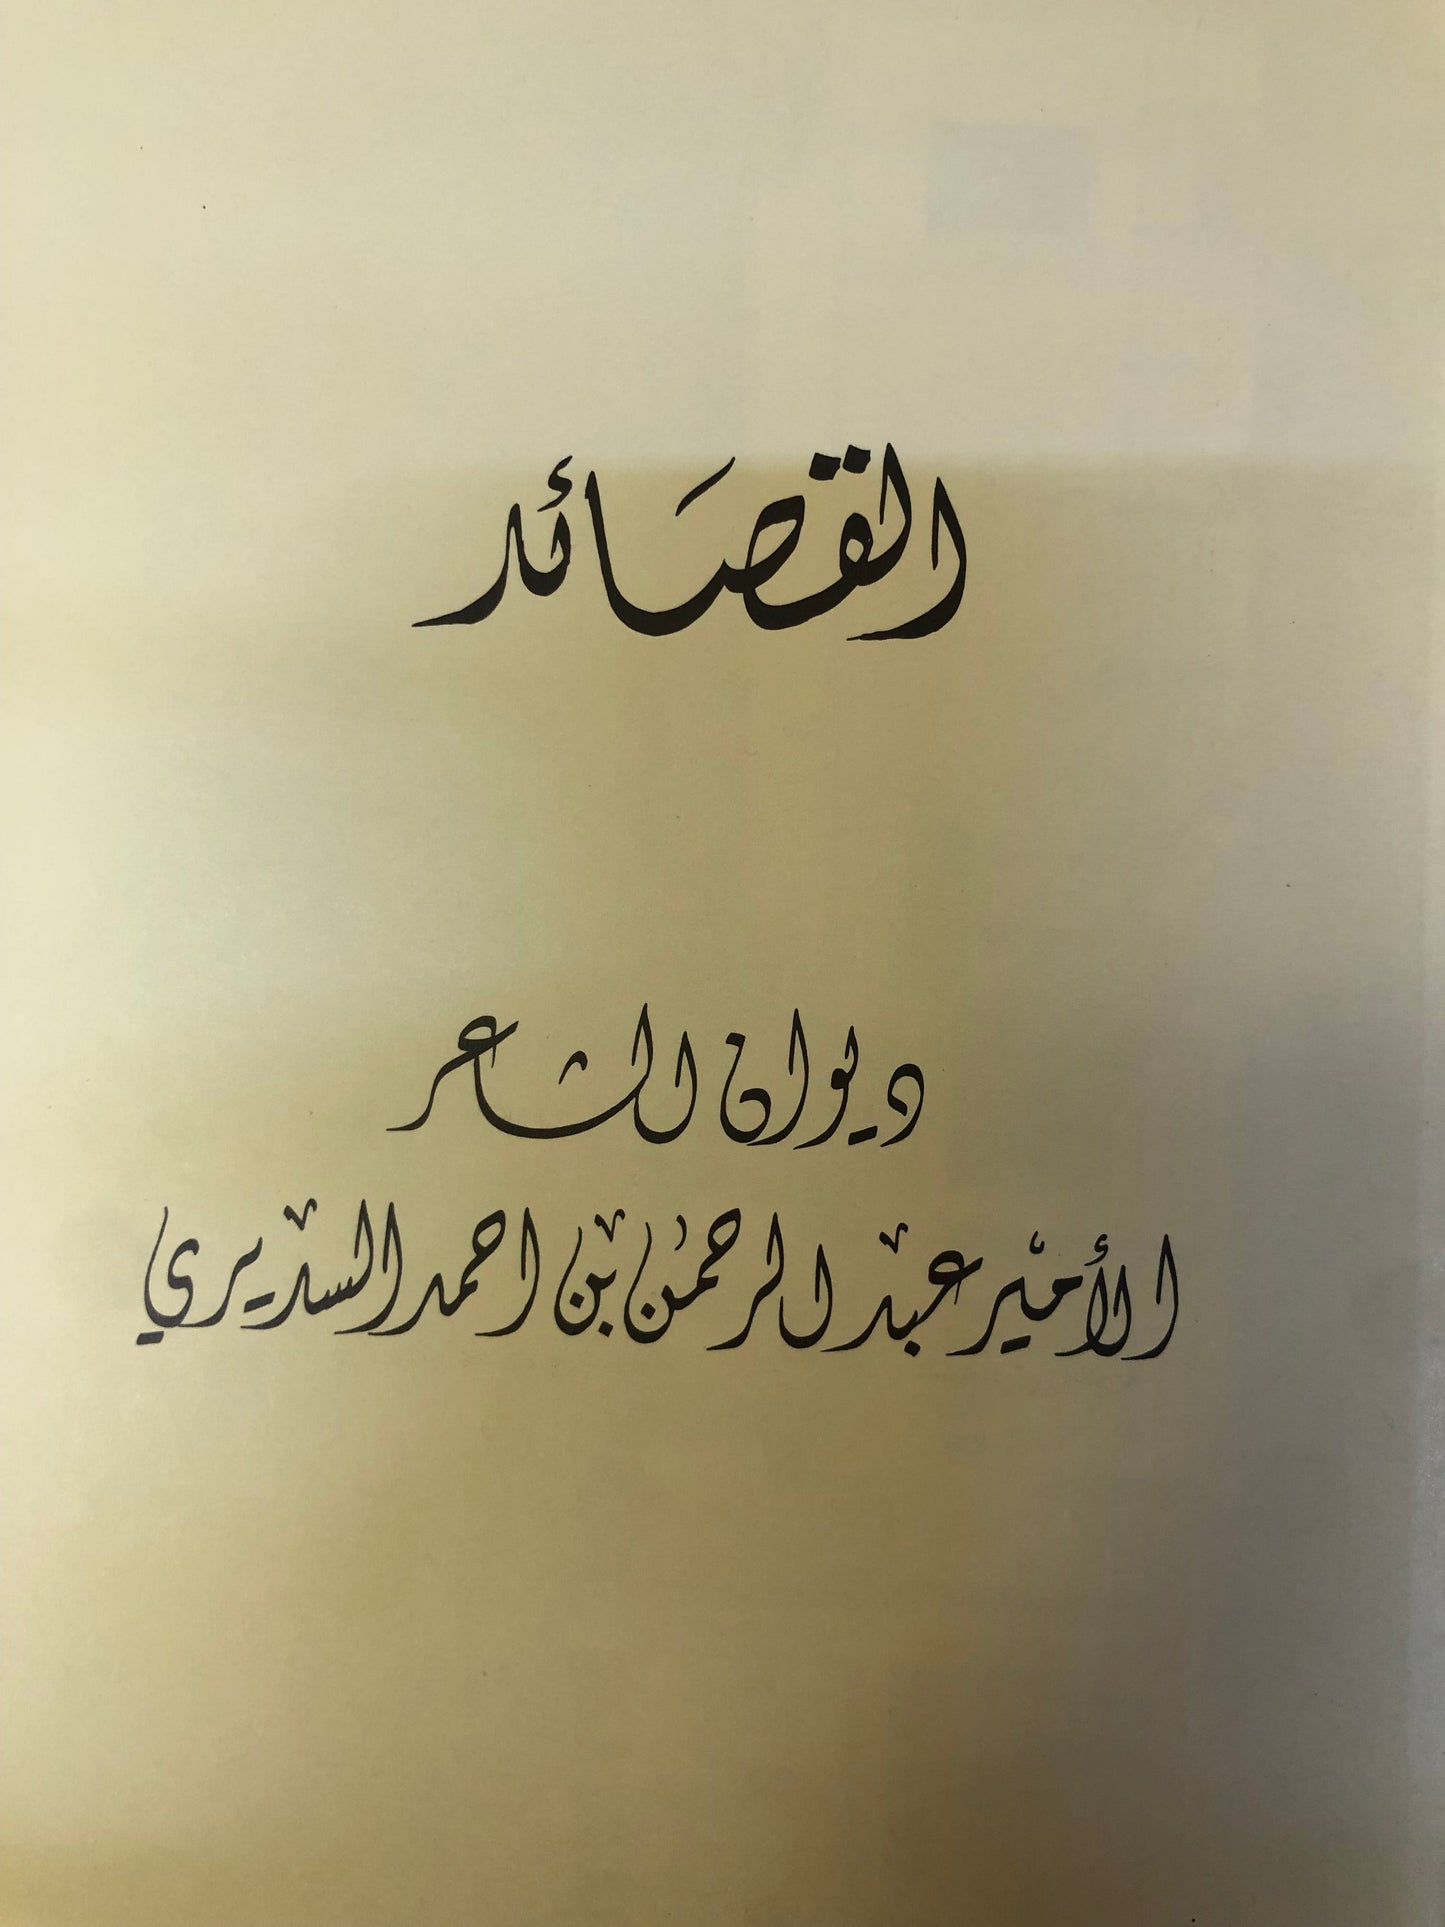 القصائد
ديوان الشاعر
الأمير عبد الرحمن بن احمد السديري